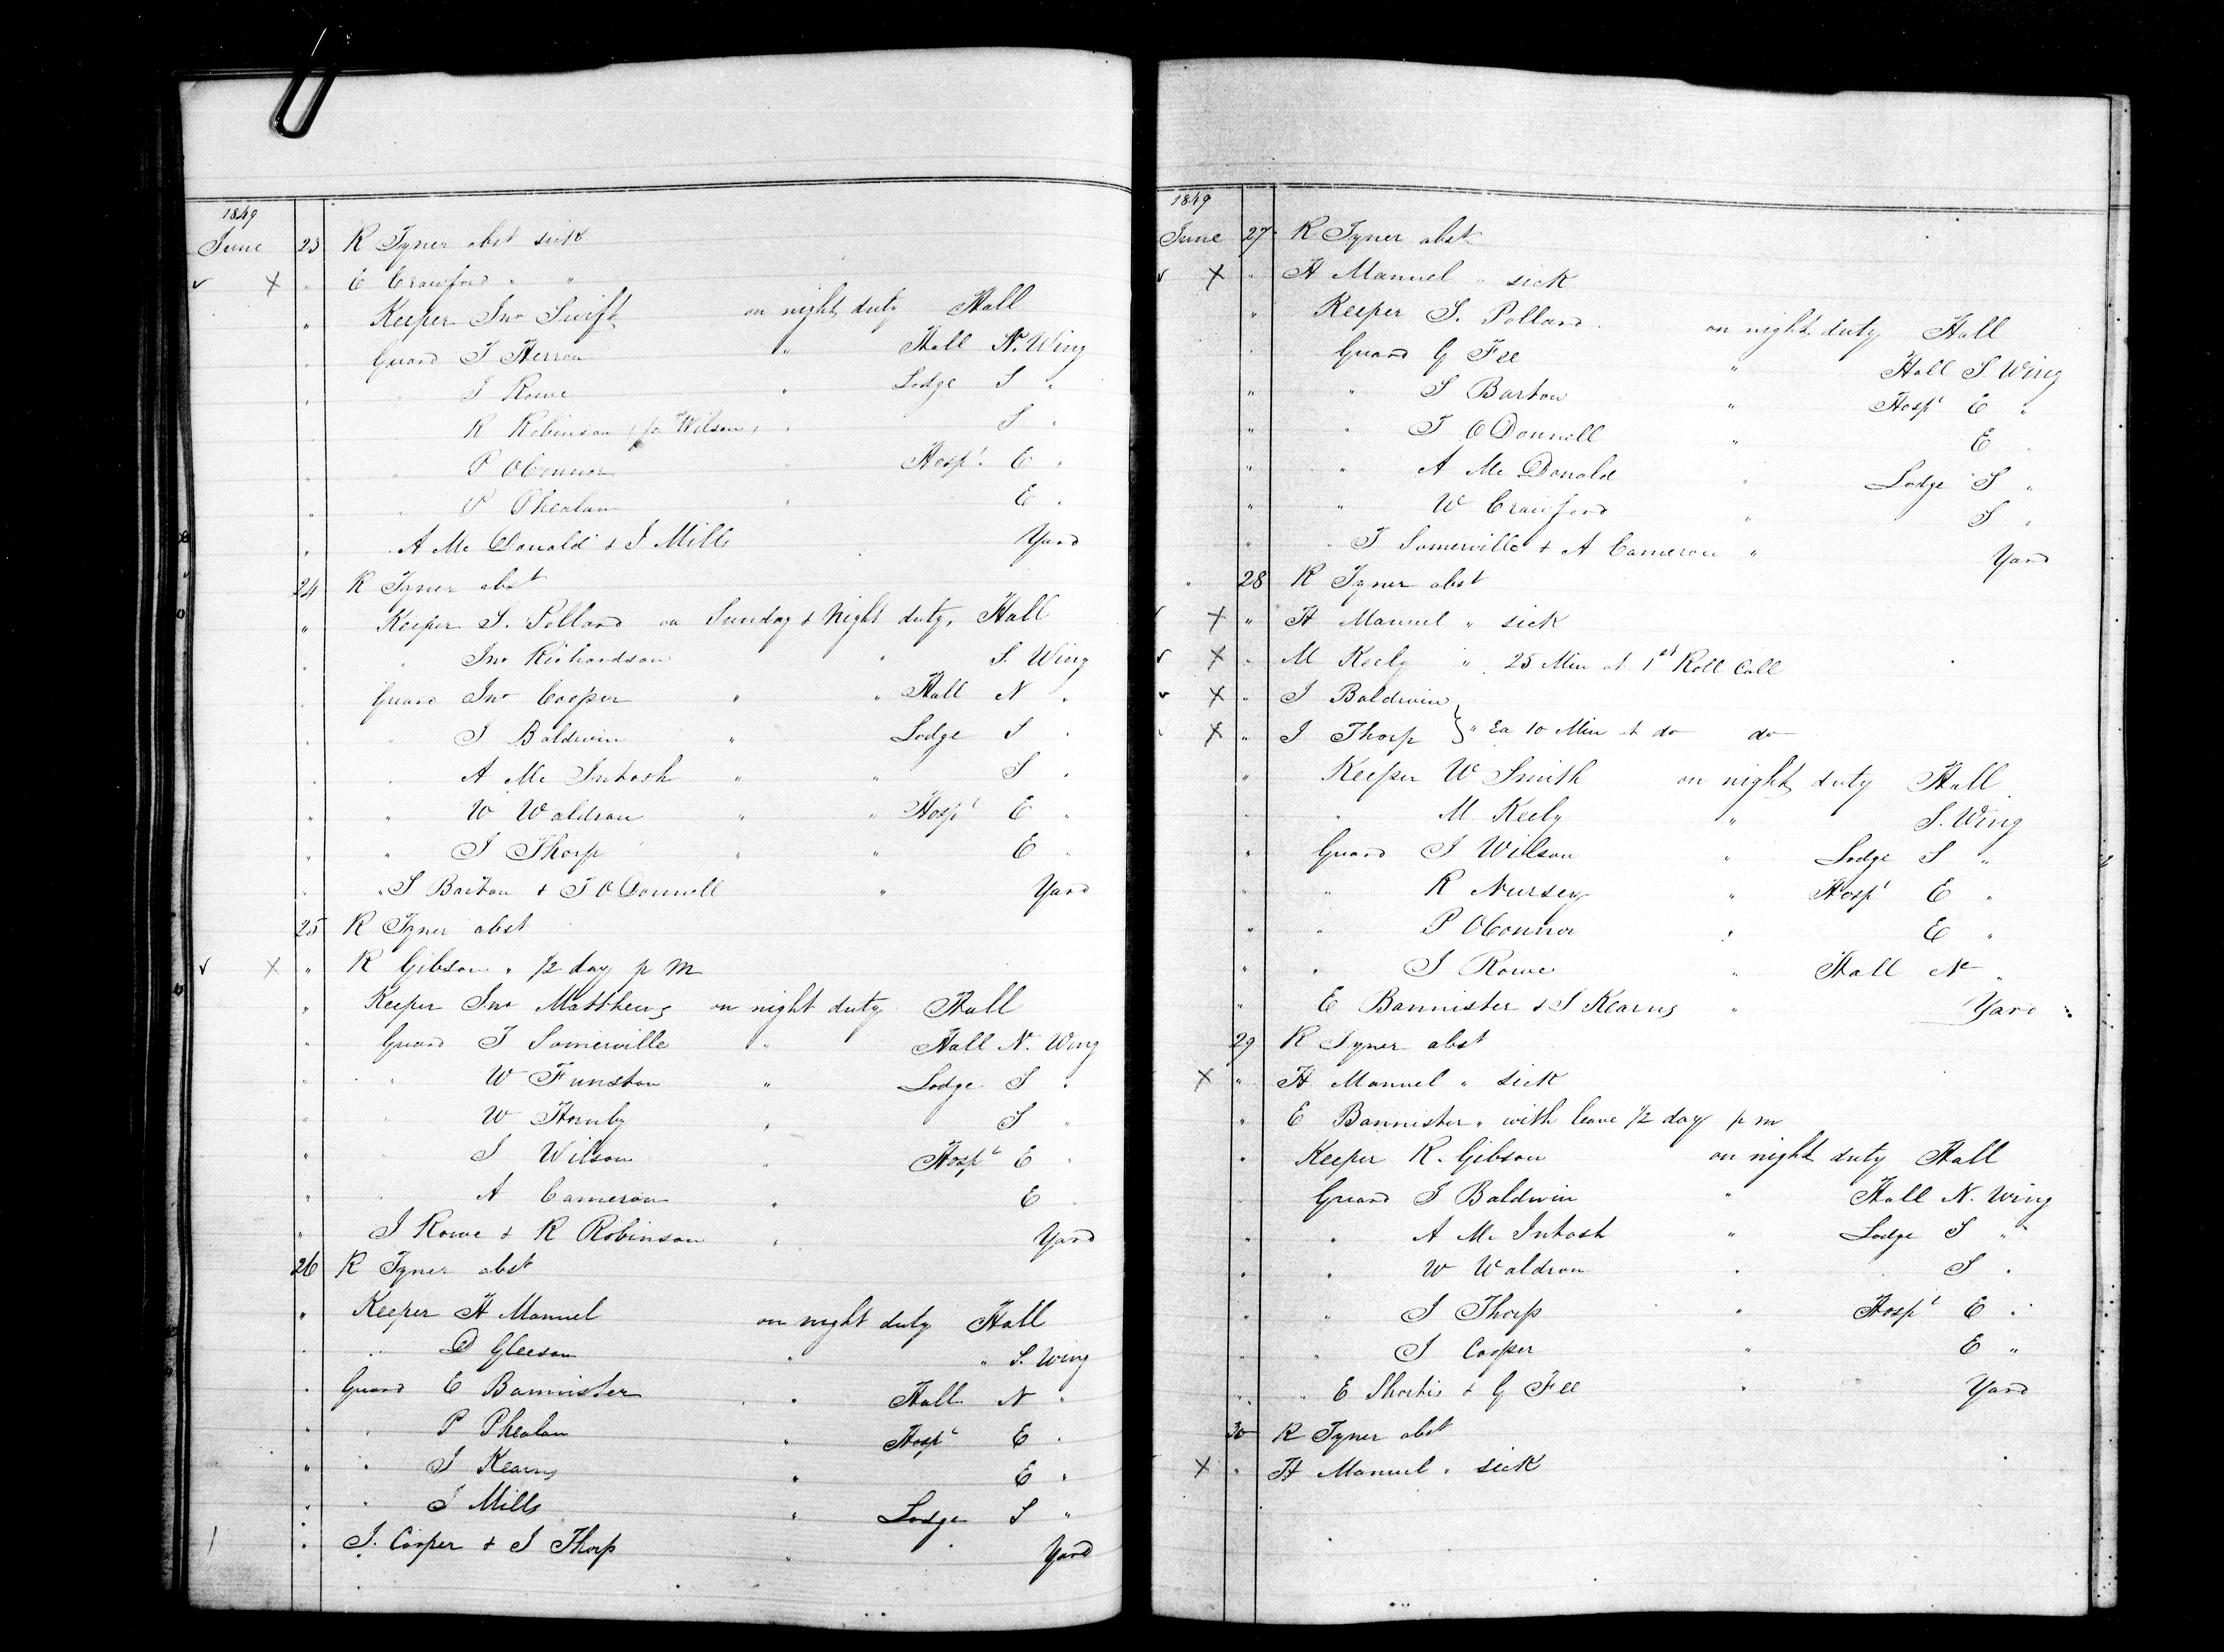 1849
June 23 R Tyner abst sick
√ X " E Crawford " "
" Keeper Jno Swift on night duty Hall
" Guard T Herron " Hall N. Wing
" " J Rowe " Lodge S "
" R Robinson (for Wilson) " S "
" " P OConnor " Hosp^l. E "
" " P Phealan " E "
" " A Mc Donald & J Mills Yard
24 R Tyner abst
" Keeper S. Pollard on Sunday & Night duty, Hall
" " Jno Richardson " S. Wing
" Guard Jno Cooper " " Hall N "
" " J Baldwin " Lodge S "
" " A Mc Intosh " " S "
" " W Waldron " " Hosp^l E "
" " J Thorp " " E "
" " S Barton & T ODonnell " Yard
25 R Tyner abst
√ X " R Gibson " 1/2 day p m
" Keeper Jno Matthews on night duty Hall
" Guard T Somerville " Hall N. Wing
" " W Funston " Lodge S "
" " W Hornby " S "
" " J Wilson " Hosp^l E "
" " A Cameron " E "
" J Rowe & R Robinson " Yard
26 R Tyner abst
" Keeper H Manuel on night duty Hall
" " D Gleeson " " S. Wing
" Guard E Bannister " " Hall N "
" " P Phealan " Hosp^l E "
" " J Kearns " E "
" " J Mills " Lodge S "
" J. Cooper & J Thorp " Yard
1849
June 27 R Tyner abst
√ X " H Manuel " sick
" Keeper S. Pollard on night duty Hall
" Guard G Fee " Hall S Wing
" " S Barton " Hosp^l E "
" " T ODonnell " E "
" " A Mc Donald " Lodge S "
" " W Crawford " S "
" " T Somerville & A Cameron " Yard
" 28 R Tyner abst
√ X " H Manuel " sick
√ X " M Keely " 25 Min at 1st Roll Call
√ X " J Baldwin }
√ X " J Thorp } " Ea 10 Min at do do
" Keeper W Smith on night duty Hall
" " M. Keely " S. Wing
" Guard J Wilson " Lodge S "
" " R Nursey " Hosp^l E "
" " P OConnor " E "
" " J Rowe " Hall N "
" E Bannister & J Kearns " Yard
29 R Tyner abst
X " H Manuel " sick
" E Bannister " with leave 1/2 day p m
" Keeper R. Gibson on night duty Hall
" Guard J Baldwin " Hall N. Wing
" " A Mc Intosh " Lodge S "
" " W Waldron " S "
" " J Thorp " Hosp^l E "
" " J Cooper " E "
" " E Shortis & G Fee " Yard
30 R Tyner abst
X " H Manuel " sick